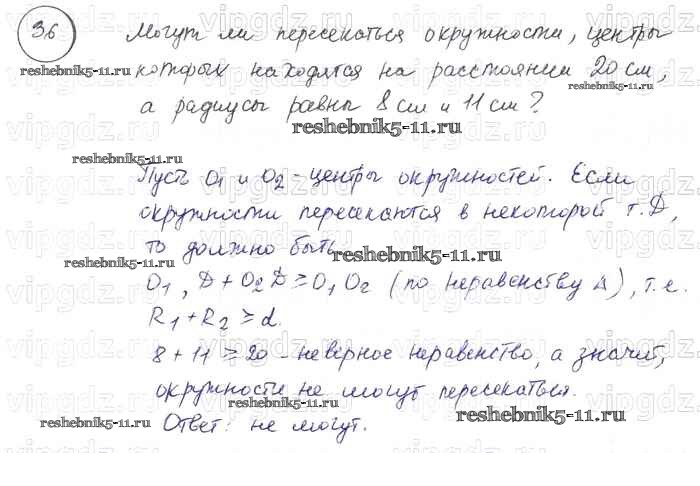 36 Могут ли пересекаться окружности, центры
которых находятся на расстоянии 20 см,
reshebnik5-11.ru reshebnik5-11.ru
а радиусы равны 8 см и 11 см?
reshebnik5-11.ru
reshebnik5-11.ru
Пусть O1 и O2 - центры окружностей. Если
окружности пересекаются в некоторой т. D,
то должно быть
reshebnik5-11.ru reshebnik5-11.ru
O1, D + O2 D ≥ O1 O2 (по неравенству Δ), т.е.
R1 + R2 ≥ d.
8 + 11 ≥ 20 - неверное неравенство, а значит,
окружности не могут пересекаться.
reshebnik5-11.ru
Ответ: не могут.
reshebnik5-11.ru reshebnik5-11.ru
vipgdz.ru